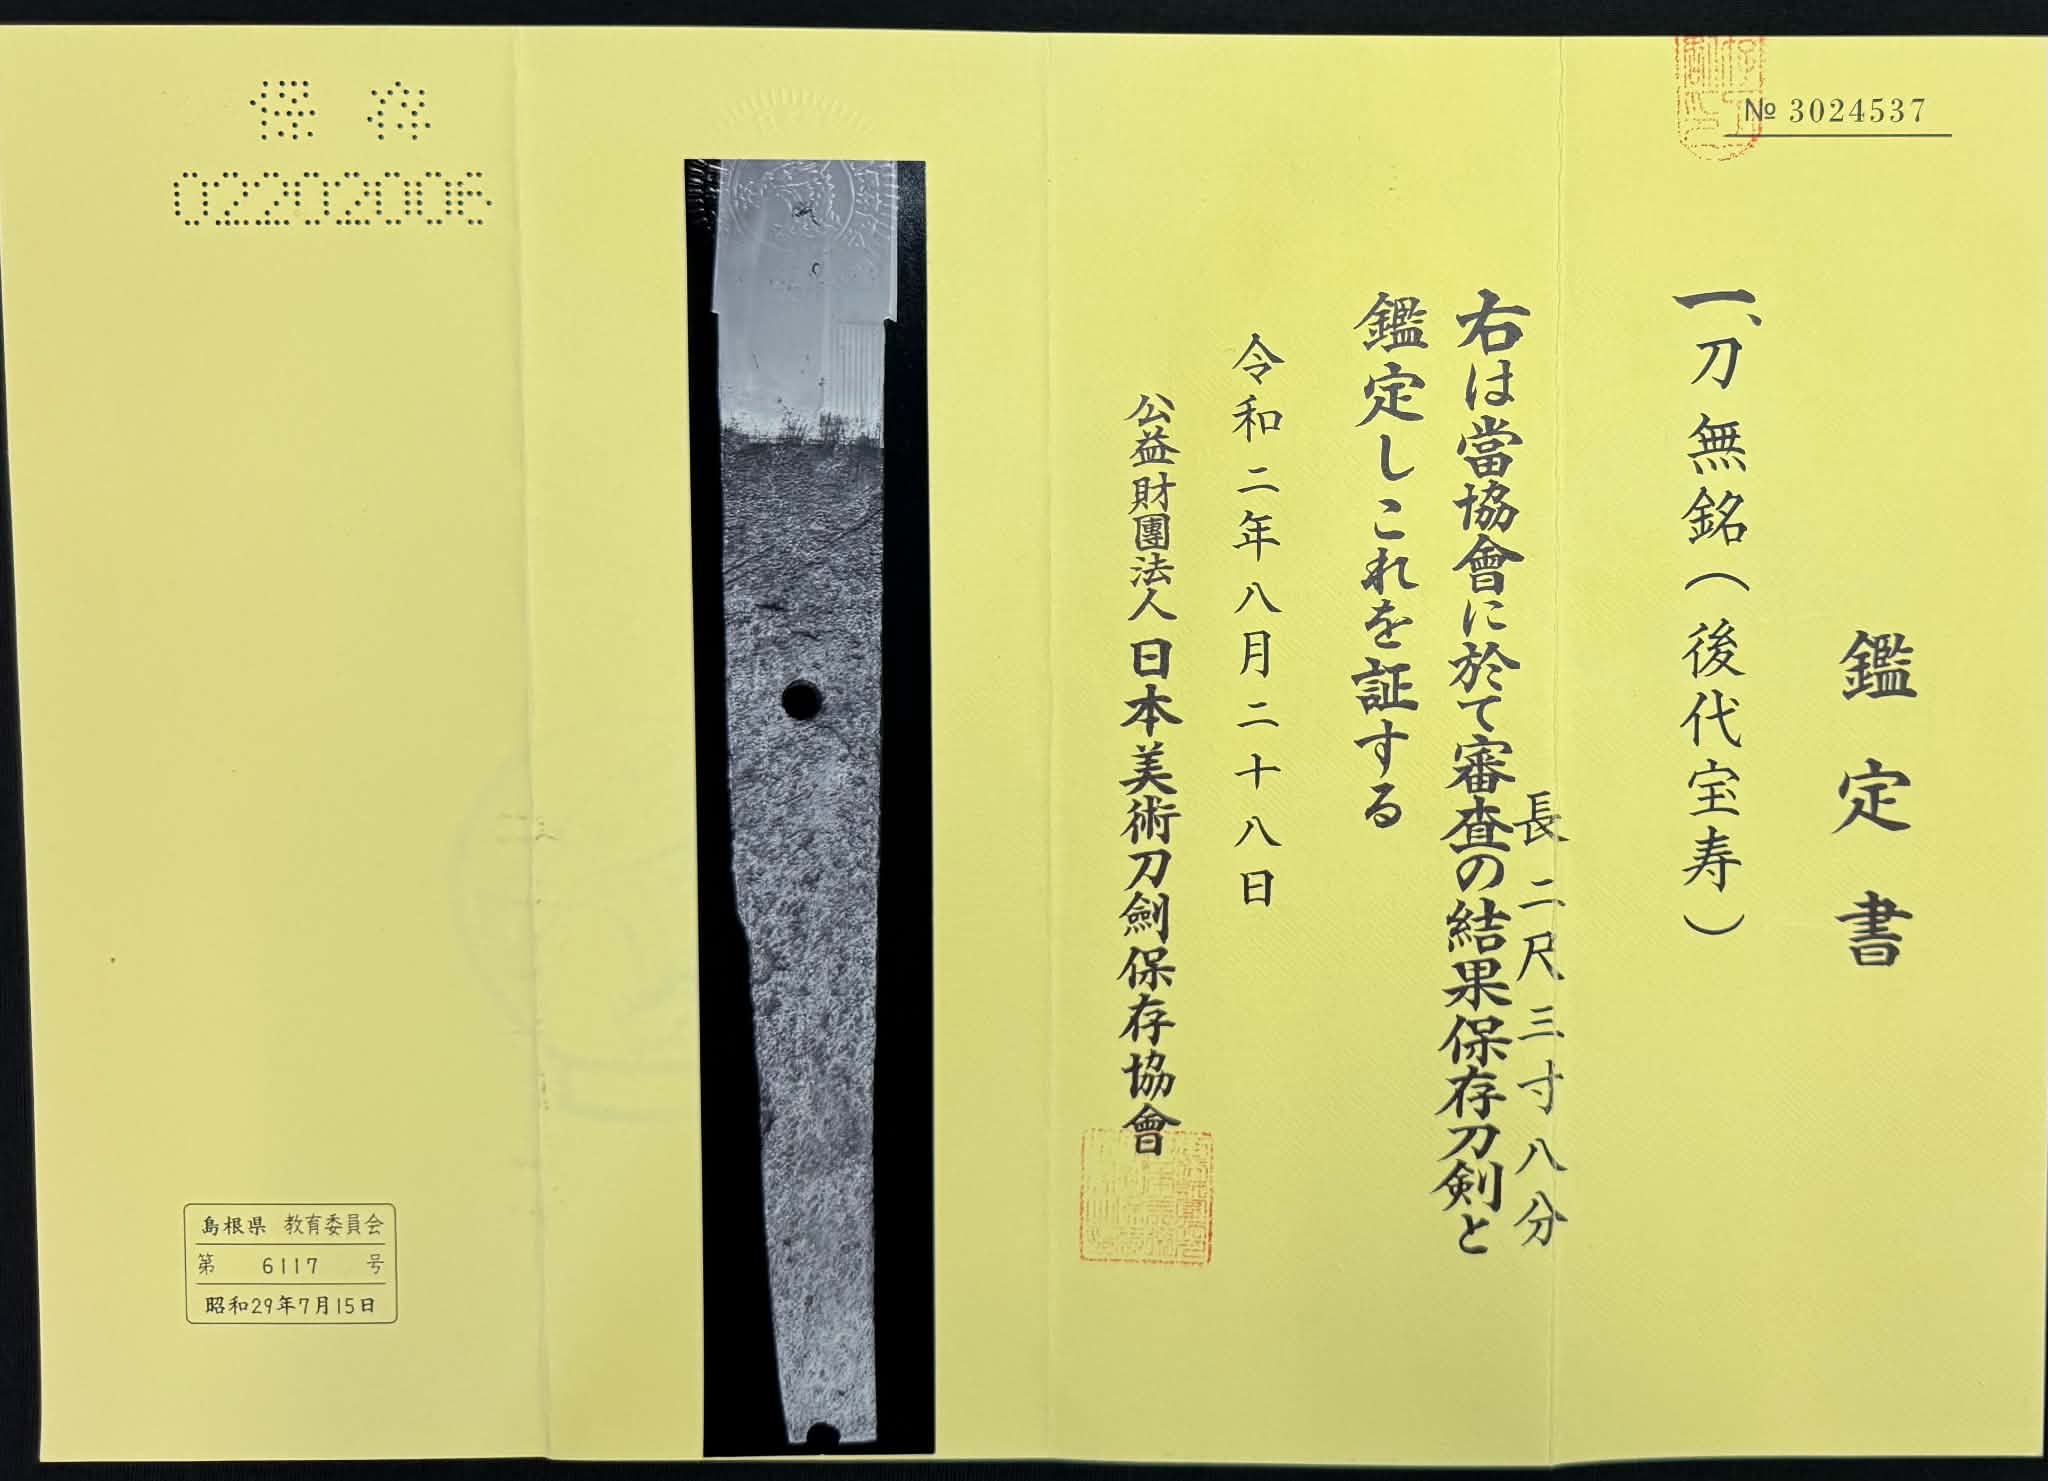 № 3024537
鑑定書
一、刀 無銘(後代宝寿)
長 二尺三寸八分
右は當協會に於て審査の結果保存刀剣と
鑑定しこれを証する
令和二年八月二十八日
公益財團法人 日本美術刀劍保存協會
保存
02202006
島根県 教育委員会
第 6117 号
昭和29年7月15日